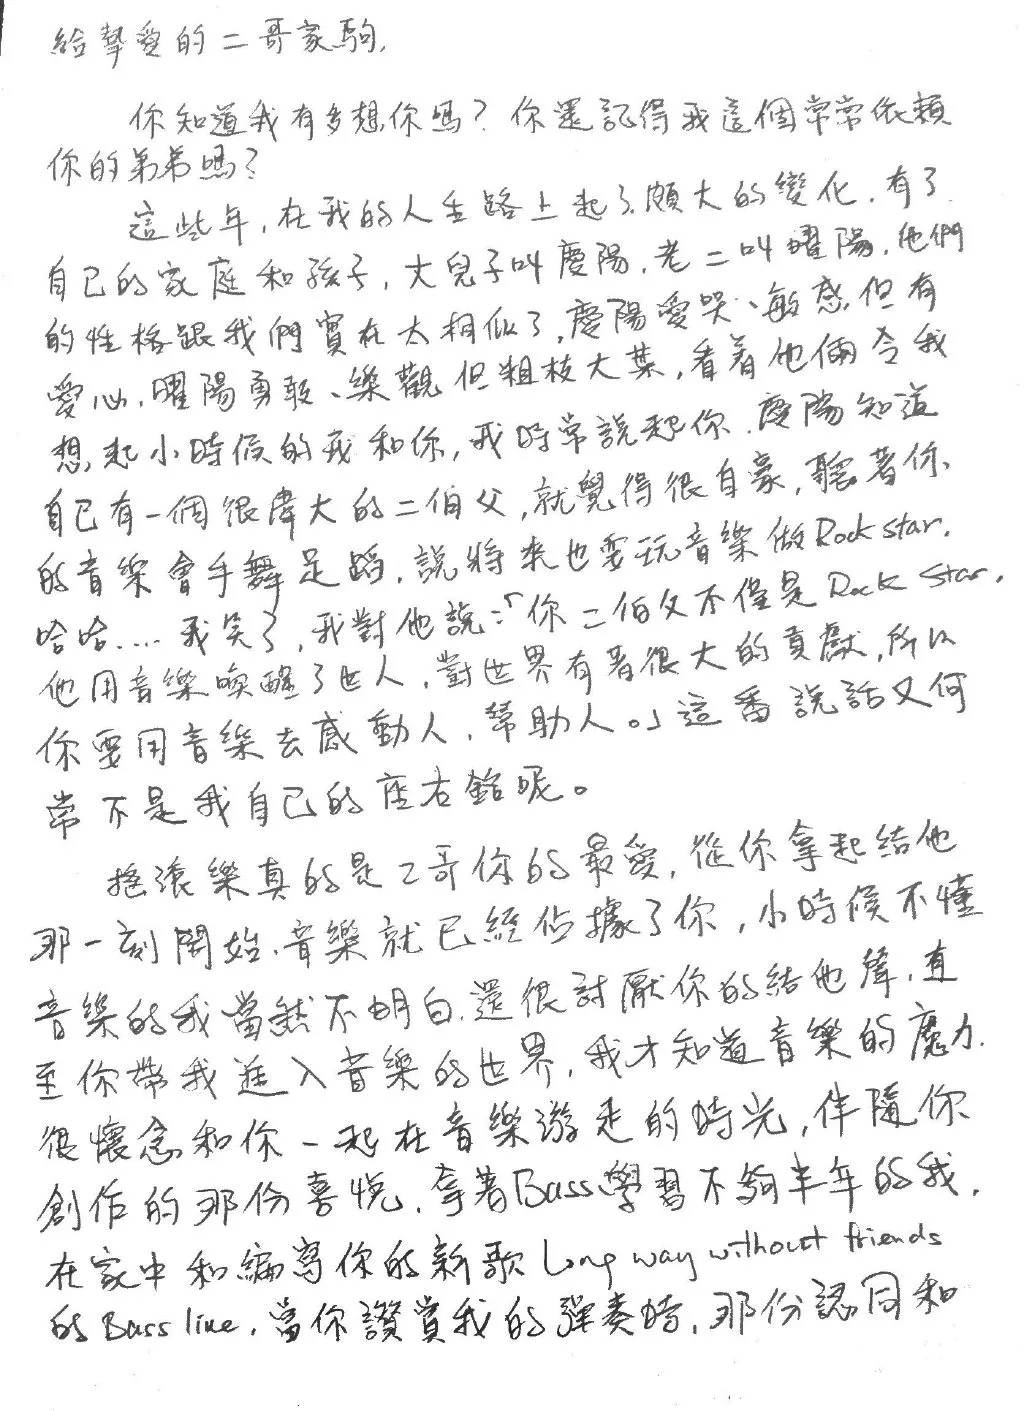 給摯愛的二哥家駒,
你知道我有多想你嗎?你還記得我這個常常依賴
你的弟弟嗎?
這些年,在我的人生路上起了頗大的變化,有了
自已的家庭和孩子,大兒子叫慶陽,老二叫曜陽,他們
的性格跟我們實在太相似了,慶陽愛哭、敏感但有
愛心,曜陽勇敢、樂觀但粗枝大葉,看着他倆令我
想起小時候的我和你,我時常說起你,慶陽知道
自已有一個很偉大的二伯父,就覺得很自豪,聽著你
的音樂會手舞足蹈,說將來也要玩音樂做Rock star,
哈哈....我笑了,我對他說:「你二伯父不僅是Rock Star,
他用音樂喚醒了世人,對世界有著很大的貢獻,所以
你要用音樂去感動人,幫助人。」這番說話又何
常不是我自己的座右銘呢。
搖滾樂真的是二哥你的最愛,從你拿起結他
那一刻開始,音樂就已經佔據了你,小時候不懂
音樂的我當然不明白,還很討厭你的結他聲,直
至你帶我進入音樂的世界,我才知道音樂的魔力,
很懷念和你一起在音樂游走的時光,伴隨你
創作的那份喜悅,拿著Bass學習不夠半年的我,
在家中和編寫你的新歌Long way without friends
的Bass line,當你讚賞我的彈奏時,那份認同和